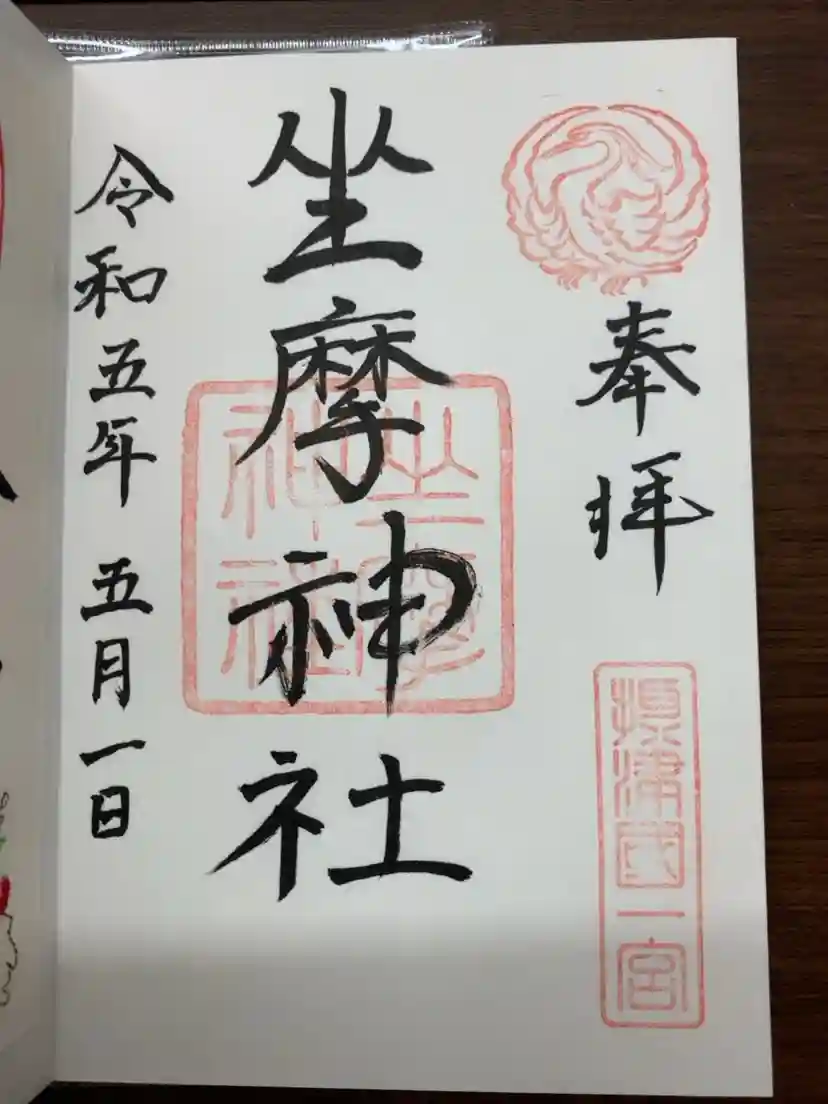 奉拝
摂津國一宮
坐摩神社
坐摩神社
令和五年 五月一日